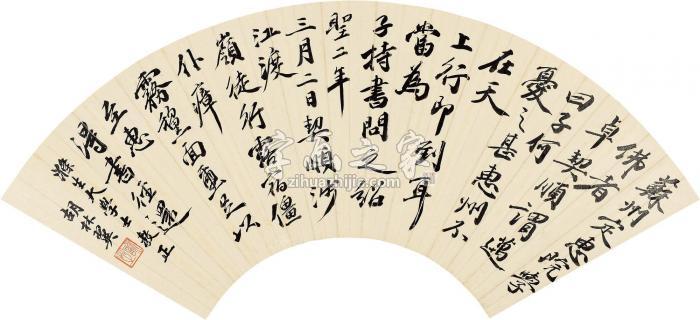 蘇州定惠院學
佛者
卓契順謂邁
曰子何
憂之甚惠州不
在天
上行即到耳
當為
子持書問之紹
聖二年
三月二日契順涉
江渡
嶺徒行露宿僵
仆瘴
霧黧面重足以
至惠
得書徑還
滌生大學士教正
胡林翼
字画之家
zihuazhijia.com